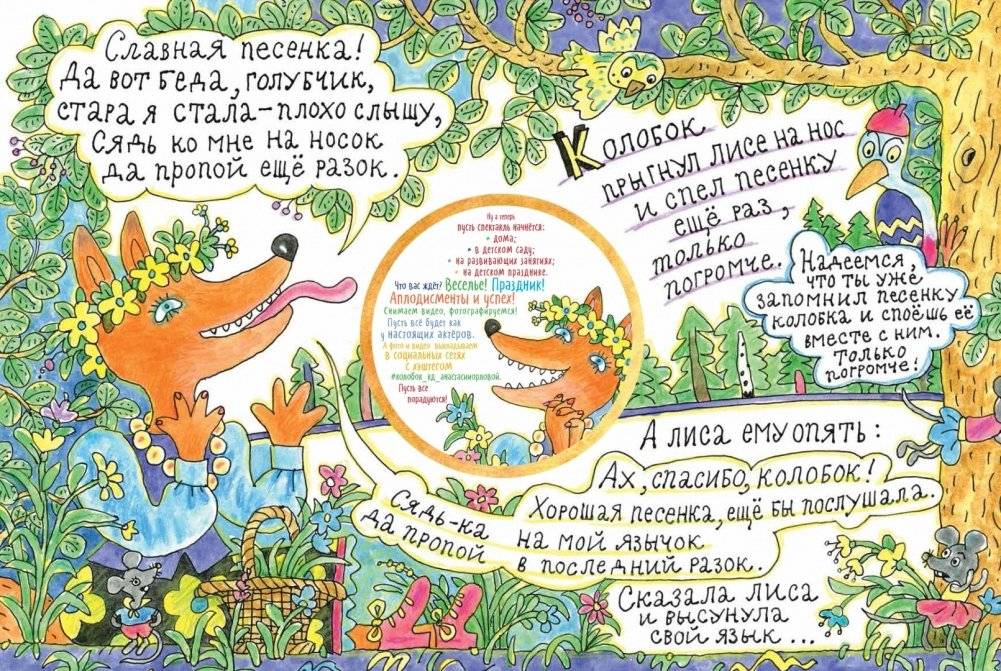 Славная песенка!
Да вот беда, голубчик,
стара я стала – плохо слышу,
Сядь ко мне на носок
да пропой ещё разок.
Колобок
прыгнул лисе на нос
и спел песенку
ещё раз,
только
погромче.
Надеемся,
что ты уже
запомнил песенку
колобка и споёшь её
вместе с ним.
Только
погромче!
Ну а теперь
пусть спектакль начнётся:
• дома;
• в детском саду;
• на развивающих занятиях;
• на детском празднике.
Что вас ждёт? Веселье! Праздник!
Аплодисменты и успех!
Снимаем видео, фотографируемся!
Пусть всё будет как
у настоящих актёров.
А фото и видео выкладываем
в социальных сетях
с хэштегом
#колобок_ид_анастасииорловой.
Пусть все
порадуются!
А лиса ему опять:
Ах, спасибо, колобок!
Хорошая песенка, ещё бы послушала.
Сядь-ка на мой язычок
да пропой в последний разок.
Сказала лиса
и высунула
свой язык ...